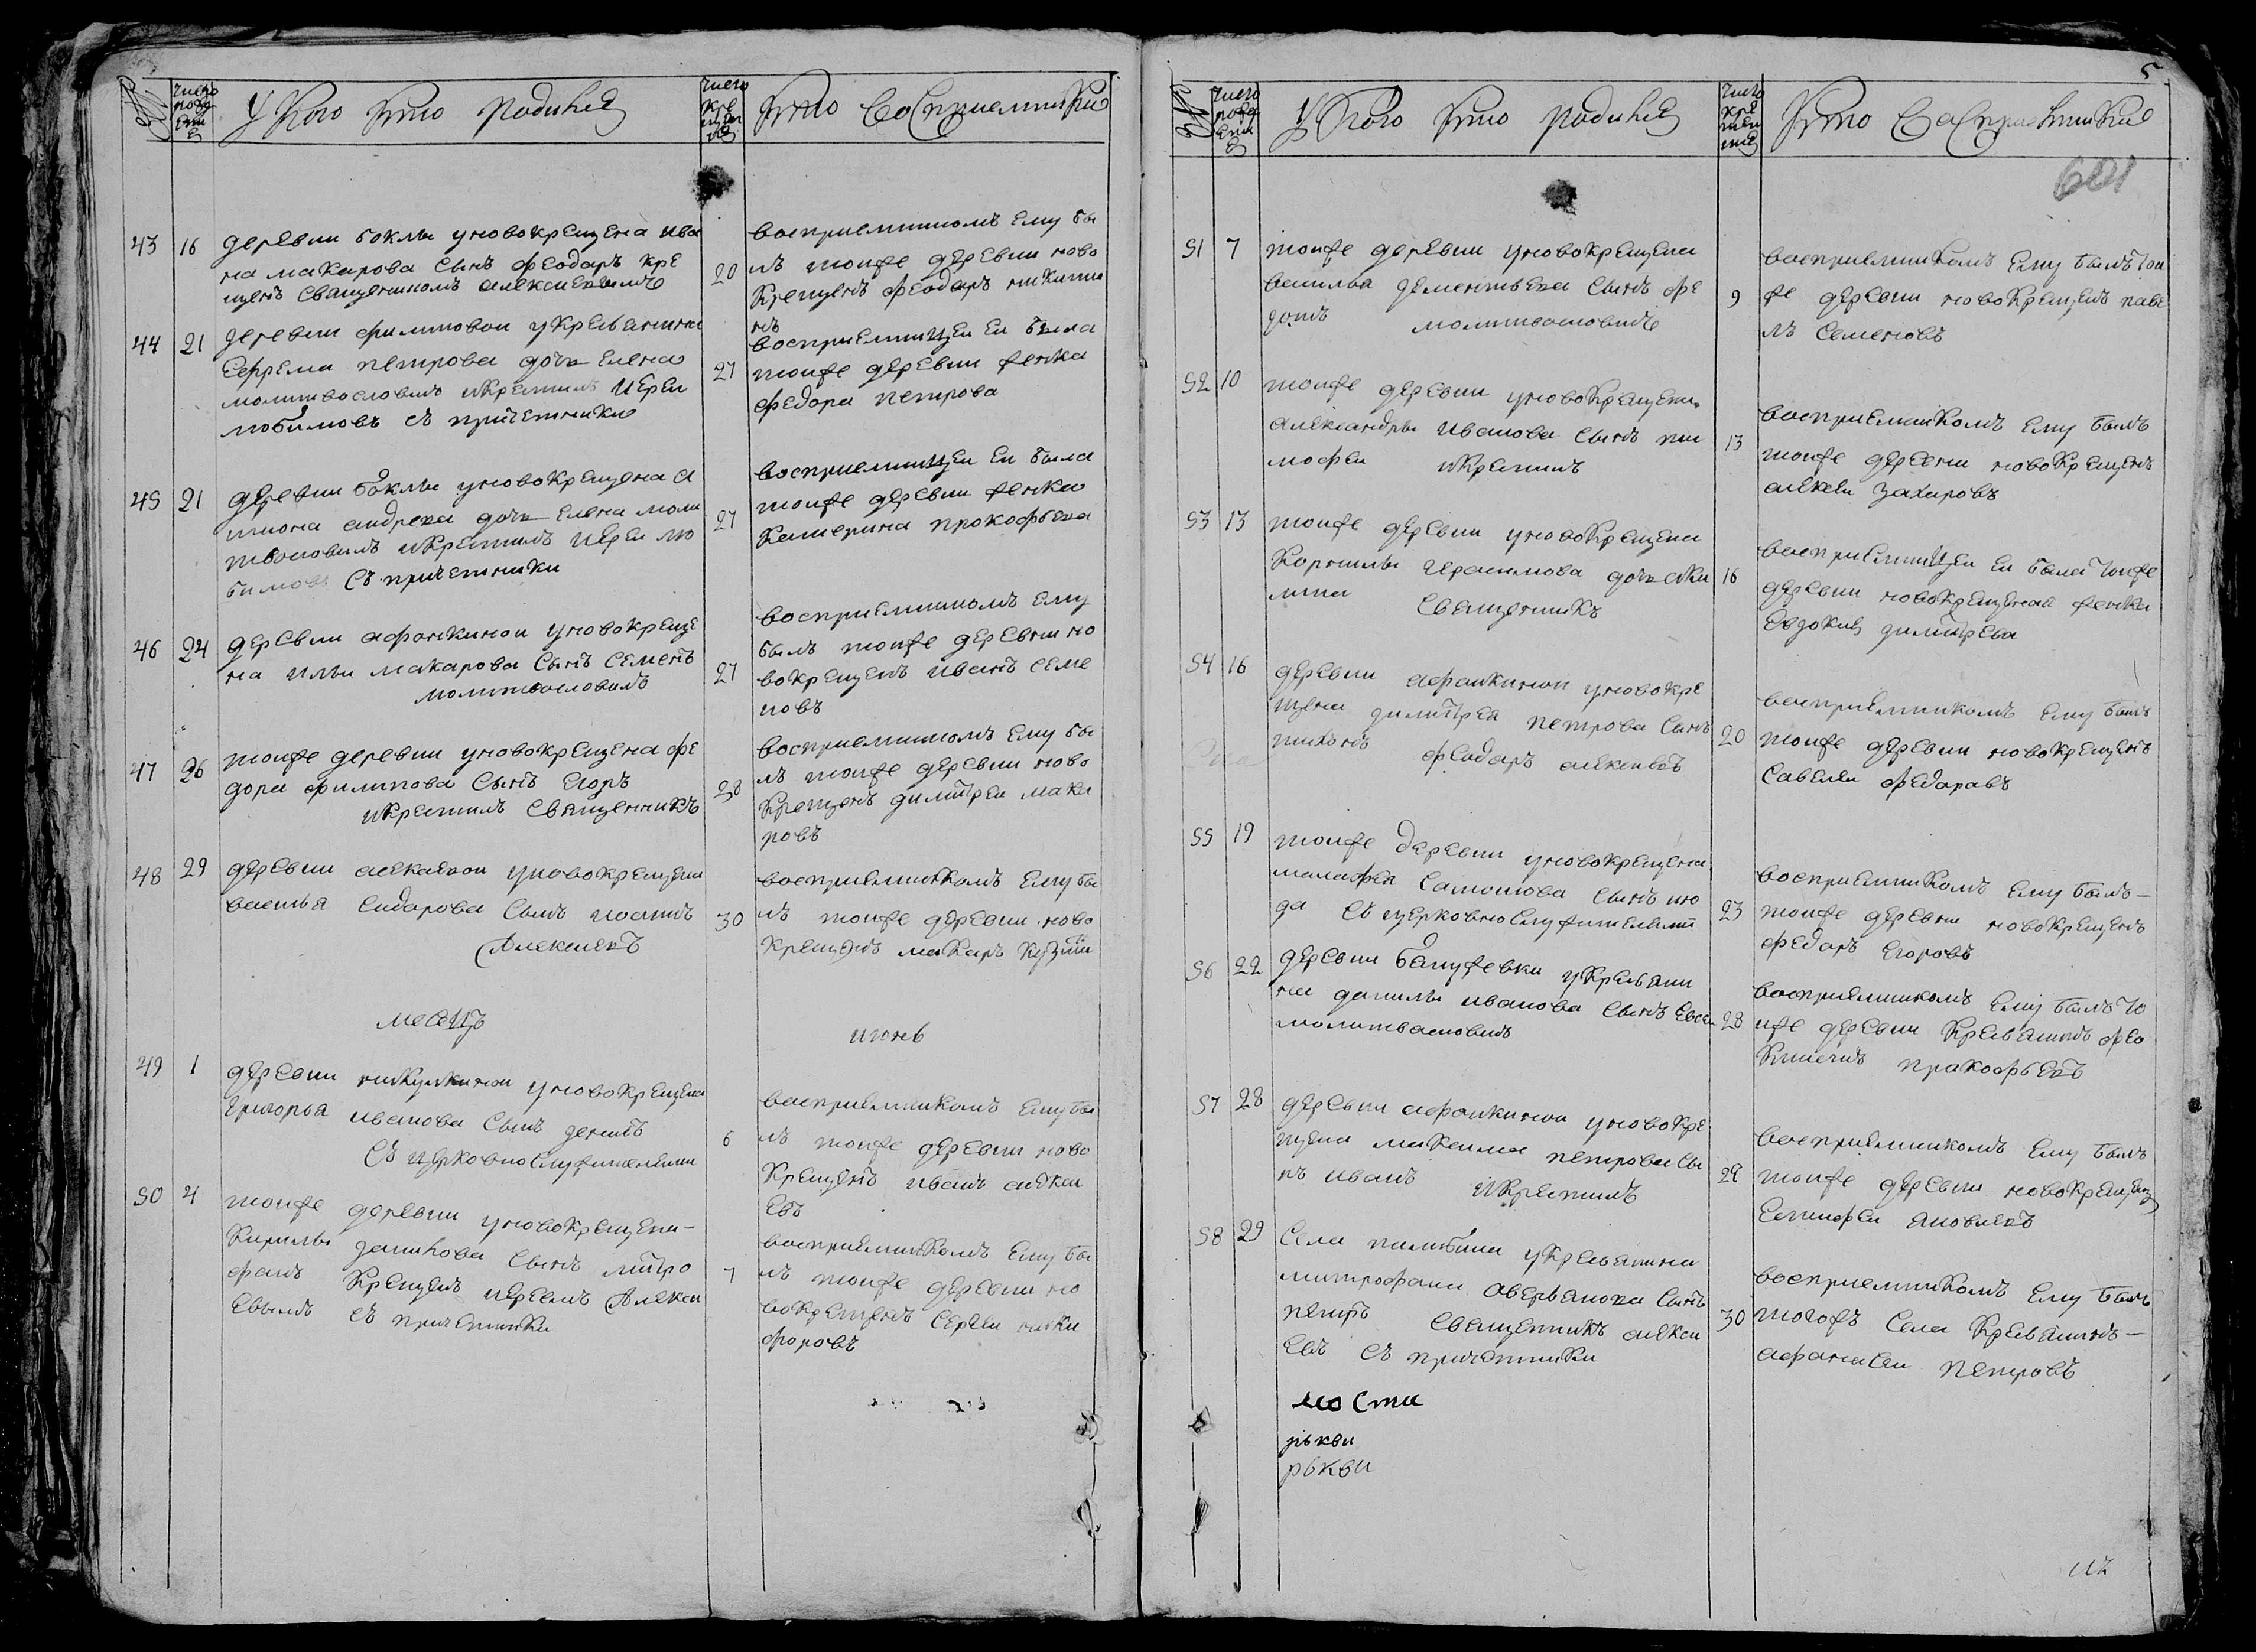 Число рожде ния
У кого кто родился
Число кре щени я
Кто восприемники
43 16 деревни боклы уновокрещена ива
на макарова сынъ феодоръ кре
щенъ священникомъ алексиевымъ
20
восприемникомъ ему бы
лъ тойже деревни ново
крещенъ феодоръ никити
нъ
44 21 деревни филиповои укрестьянина
ефрема петрова дочь елена
молитвословилъ икрестилъ иереи
любимовъ съ причетники
27
восприемницеи еи была
тоиже деревни женка
федора петрова
45 21 деревни боклы уновокрещена а
нтиона андреева дочь елена моли
твословилъ икрестилъ иереи лю
бимовъ съ причетники
27
восприемницеи еи была
тоиже деревни женка
катерина прокофьева
46 24 деревни афонкинои уновокреще
на ильи макарова сынъ семенъ
молитвословилъ
27
восприемникомъ ему
былъ тоиже деревни но
вокрещенъ иванъ семе
новъ
47 26 тоиже деревни уновокрещена фе
дора филипова сынъ егоръ
икрестилъ священникъ
28
восприемникомъ ему бы
лъ тоиже деревни ново
крещенъ димитреи мака
ровъ
48 29 деревни уновокрещена
василья сидорова сынъ
алексиевъ
30
восприемникомъ ему бы
лъ тоиже деревни ново
крещенъ макаръ кузми
месецъ июнь
49 1 деревни никулкинои уновокрещена
григорья иванова сынъ
съ церковнослужительми
6
восприемникомъ ему бы
лъ тоиже деревни ново
крещенъ иванъ алекси
евъ
50 4 тоиже деревни уновокрещена
кирилы данилова сынъ митро
фанъ крещенъ иереемъ алекси
евымъ съ причетники
7
восприемникомъ ему бы
лъ тоиже деревни но
вокрещенъ сергеи ники
форовъ
5
Число рожде ния
У кого кто родился
Число кре щени я
Кто восприемники
601
51 7 тоиже деревни уновокрещена
василья дементьева сынъ фе
дотъ молитвословилъ
9
восприемникомъ ему былъ тои
же деревни новокрещенъ паве
лъ семеновъ
52 10 тоиже деревни уновокрещена
александры иванова сынъ ти
мофеи икрестилъ
13
восприемникомъ ему былъ
тоиже деревни новокрещенъ
алексеи захаровъ
53 13 тоиже деревни уновокрещена
корнилы герасимова дочь аки
лина священникъ
16
восприемницеи еи была тоиже
деревни новокрещеная женка
евдокия димитрева
54 16 деревни афонкинои уновокре
щена димитрея петрова сынъ
тихонъ феодоръ алексиевъ
20
восприемникомъ ему былъ
тоиже деревни новокрещенъ
савелеи федоровъ
55 19 тоиже деревни уновокрещена
малафея самонова сынъ ию
да съ церковнослужительми
23
восприемникомъ ему былъ
тоиже деревни новокрещенъ
федоръ егоровъ
56 22 деревни укрестьяни
на данилы иванова сынъ
молитвословилъ
28
восприемникомъ ему былъ то
иже деревни крестьянинъ фео
прокофьевъ
57 28 деревни афонкинои уновокре
щена максима петрова сы
нъ иванъ икрестилъ
29
восприемникомъ ему былъ
тоиже деревни новокрещенъ
яковлевъ
58 29 села укрестьянина
митрофана аверьянова сынъ
петръ священникъ алекси
евъ съ причетники
30
восприемникомъ ему былъ
тогожъ села крестьянинъ
афанасеи петровъ
ности
рькви
рькви